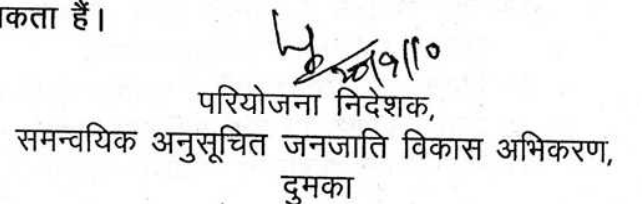 कता हैं।
20/9/10
परियोजना निदेशक,
समन्वयिक अनुसूचित जनजाति विकास अभिकरण,
दुमका